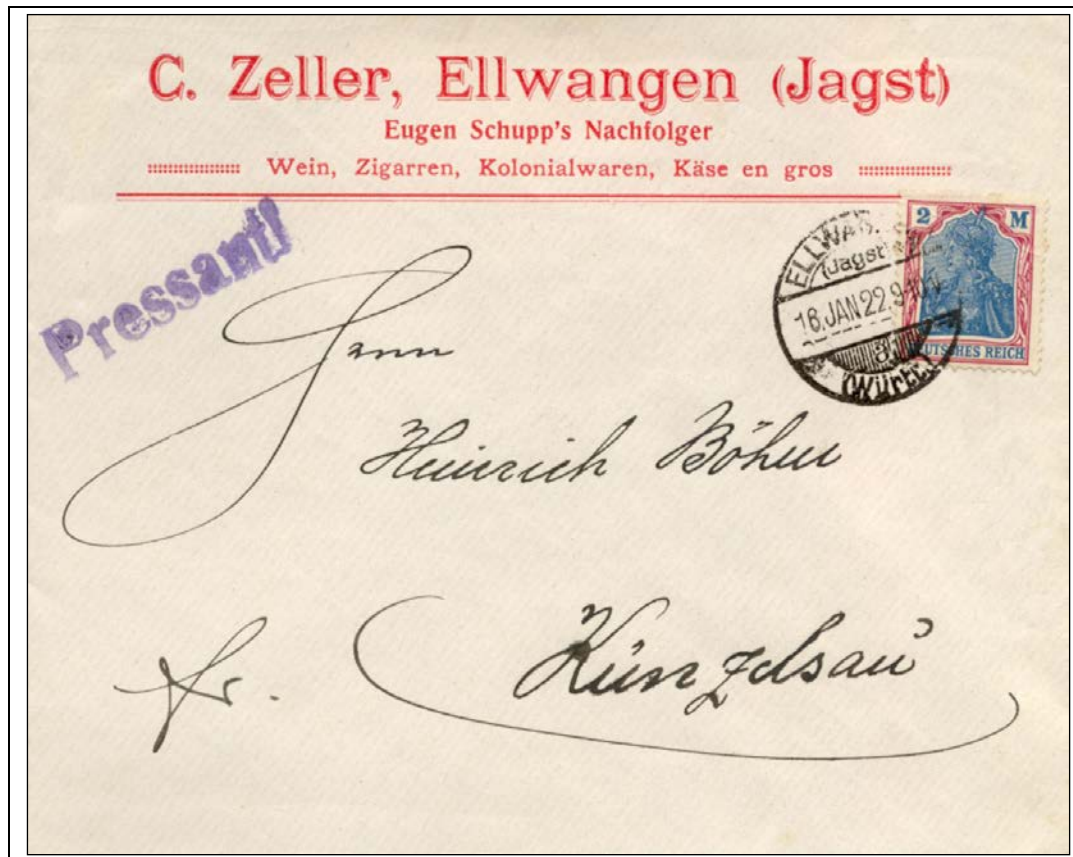 C. Zeller, Ellwangen (Jagst)
Eugen Schupp's Nachfolger
Wein, Zigarren, Kolonialwaren, Käse en gros
Pressant!
2 M
DEUTSCHES REICH
(Jagst)
16.JAN 22.9-10
(Württ.)
Herrn
Heinrich Böhm
Fr.
Künzelsau